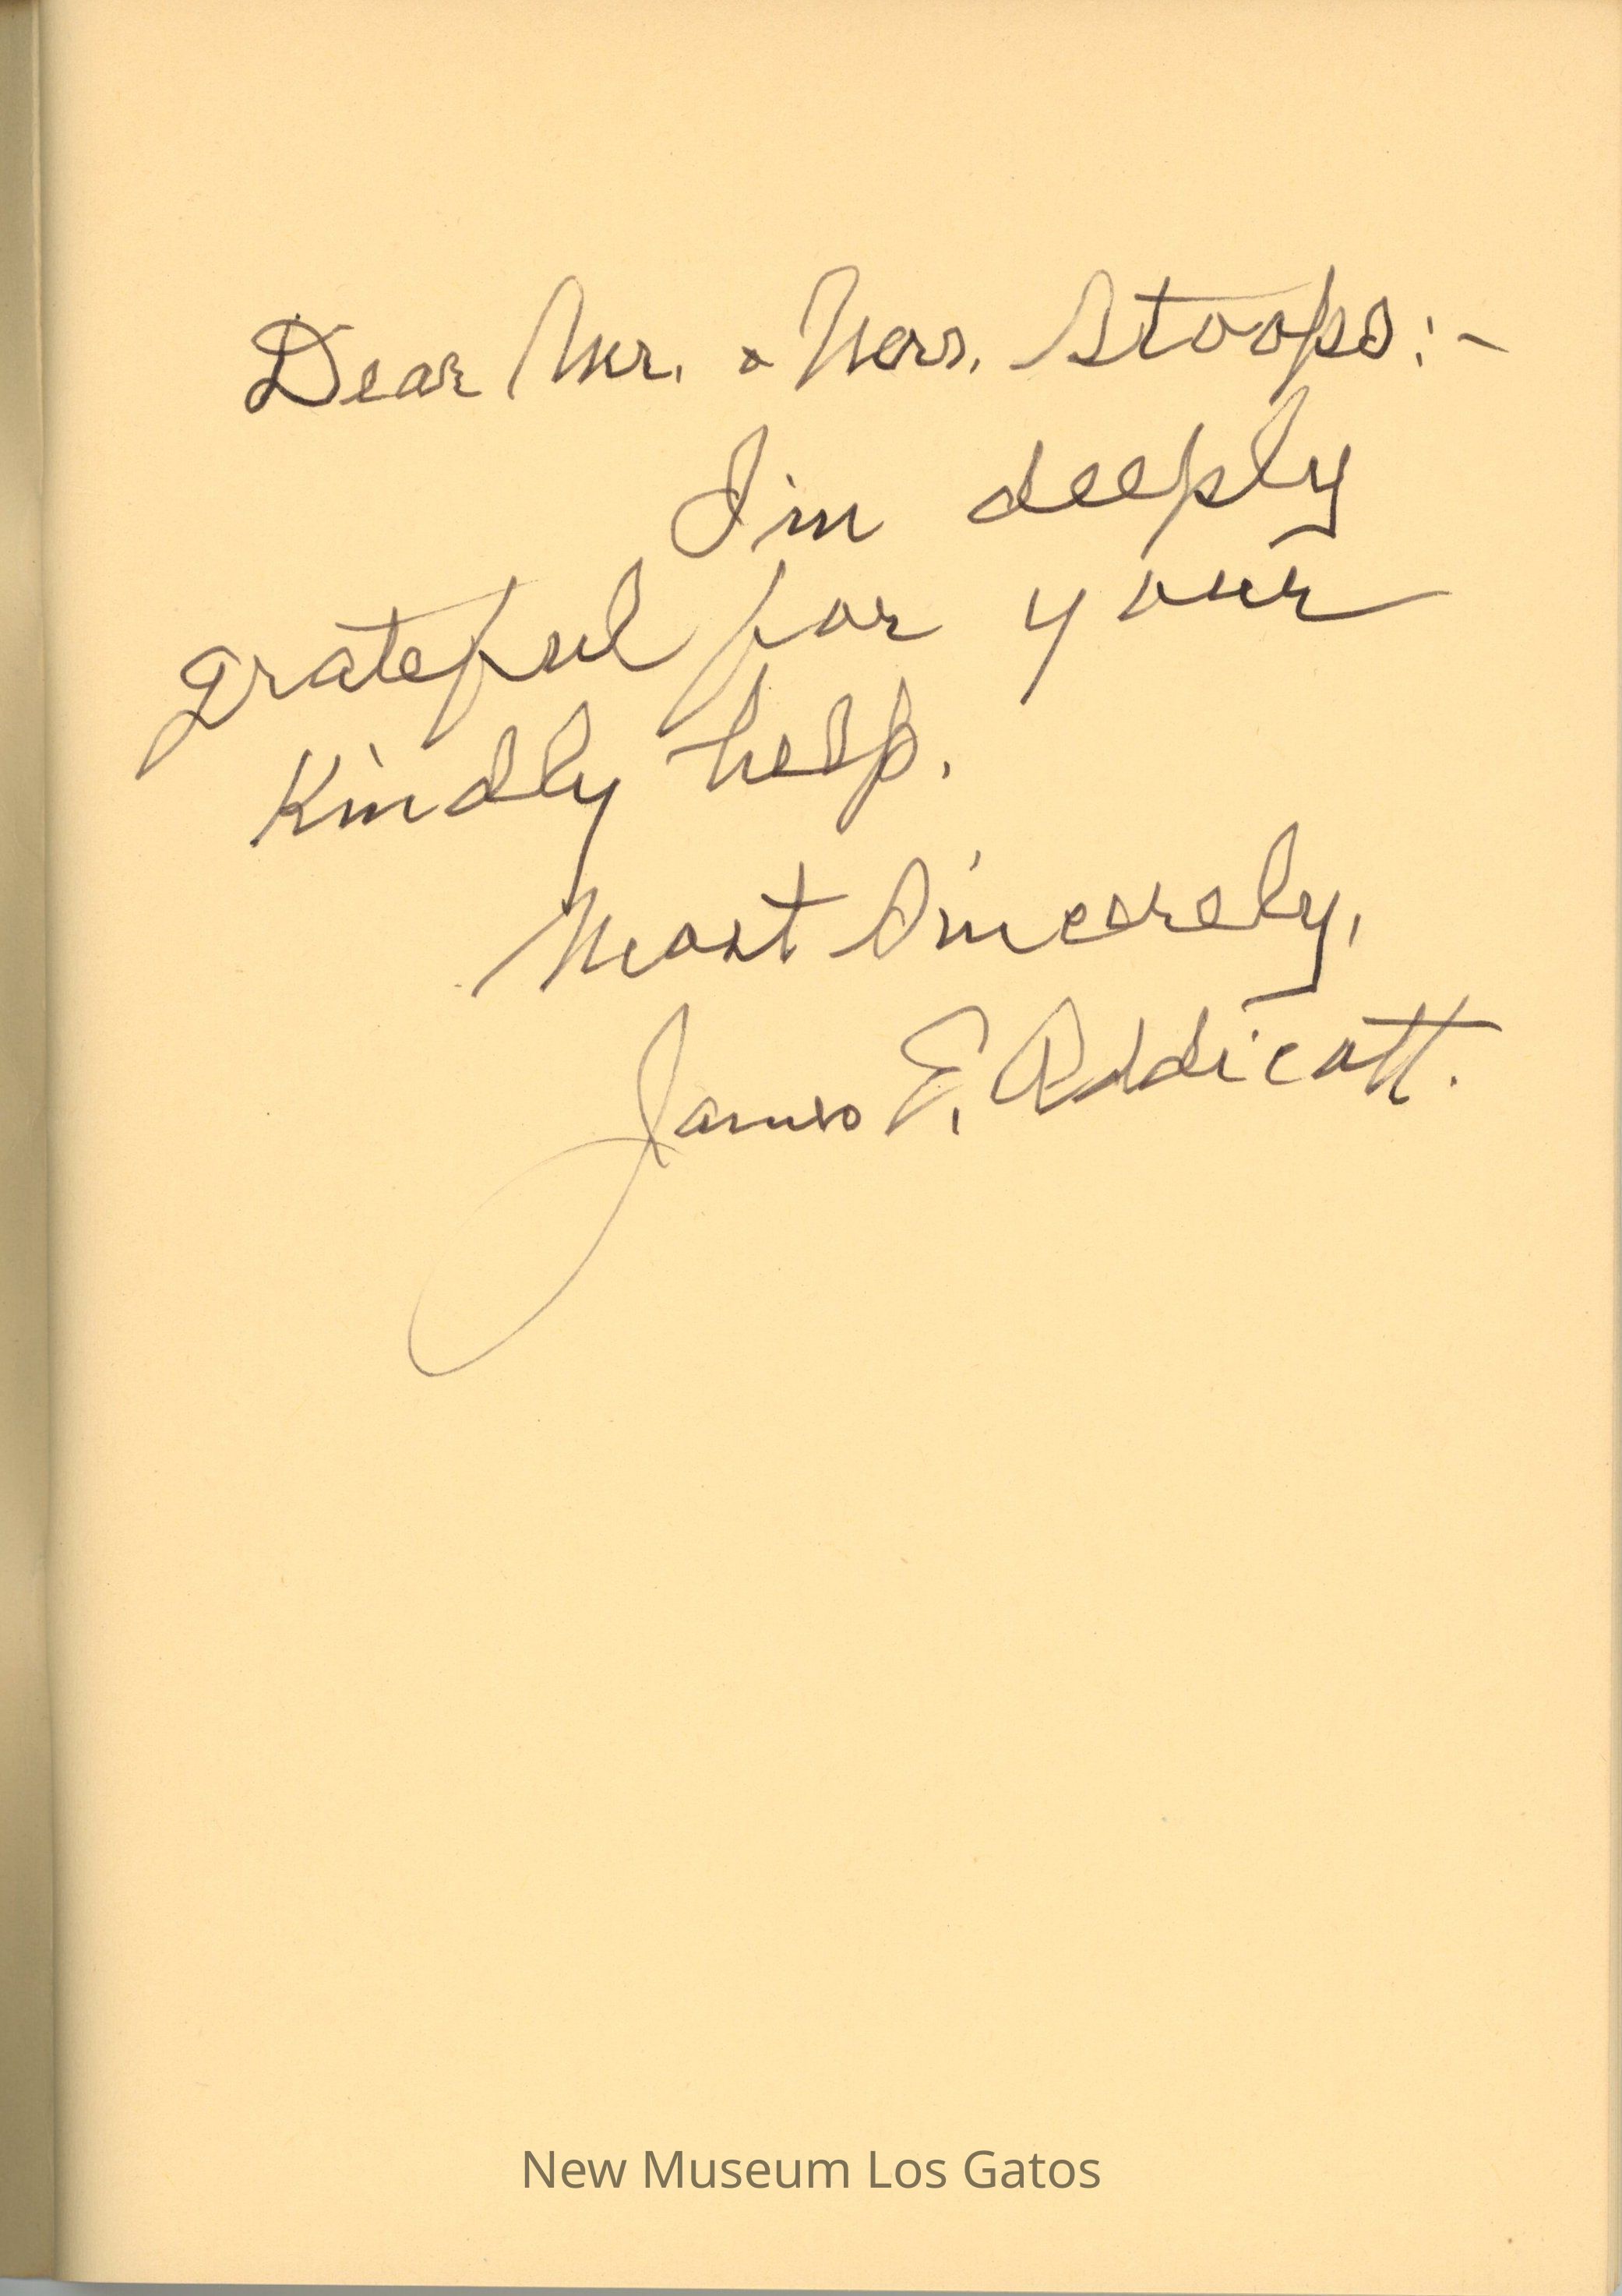 Dear Mr. & Mrs. Stoops:-
I'm deeply
grateful for your
kindly help.
Most Sincerely,
James E. Addicott.
New Museum Los Gatos